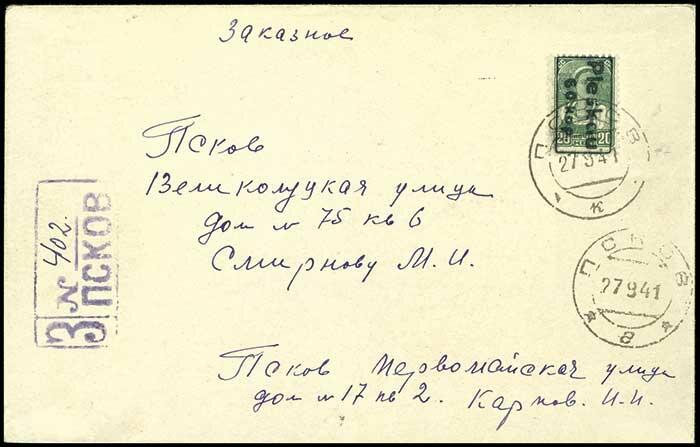 Заказное
20 20
Pleskau
60 коп
ПСКОВ
27 9 41
к
Псков
Великолуцкая улица
дом № 75 кв 6
Смирнову М. И.
З № 402.
ПСКОВ
ПСКОВ
27 9 41
в
Псков Первомайская улица
дом № 17 кв 2. Карпов. И. И.